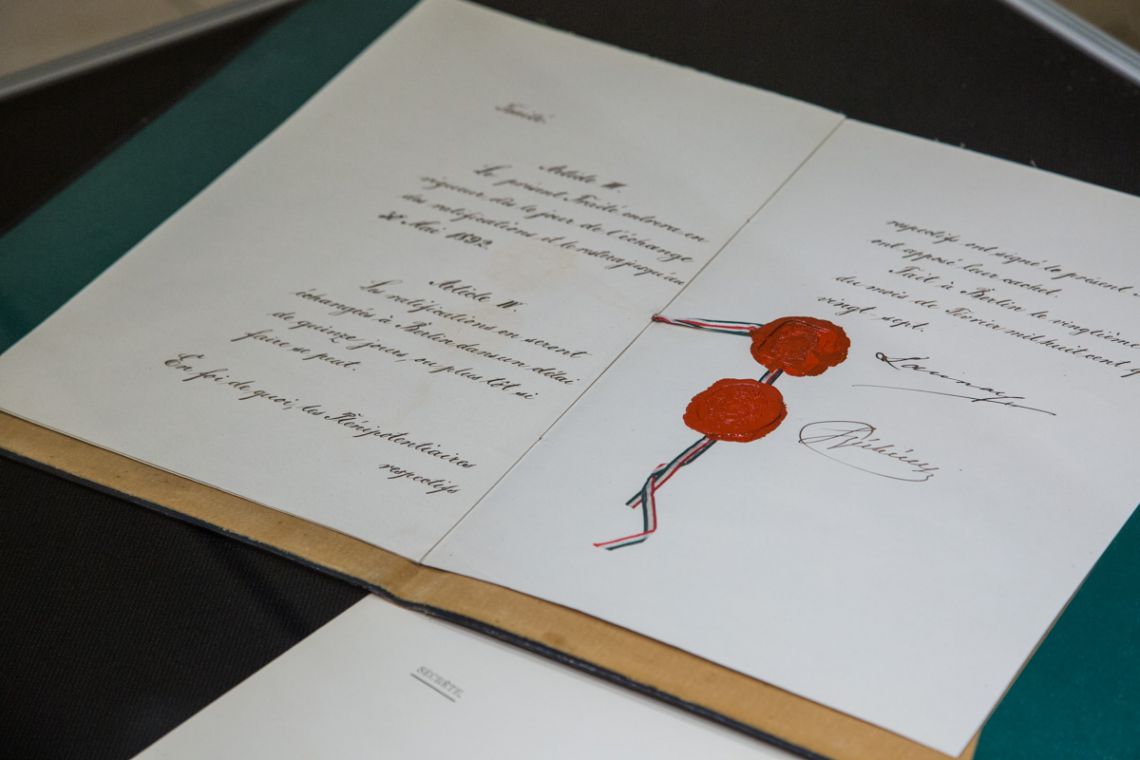 Traité.
Article IV.
Le présent Traité entrera en
vigueur dès le jour de l'échange
des ratifications et le restera jusqu'au
Mai 1892.
Article V.
Les ratifications en seront
échangées à Berlin dans un délai
de quinze jours, ou plus tôt si
faire se peut.
En foi de quoi, les Plénipotentiaires
respectifs
respectifs ont signé le présent
ont apposé leur cachet.
Fait à Berlin le vingtième
du mois de Février mil huit cent
vingt sept.
Launay
SECRÈTE.